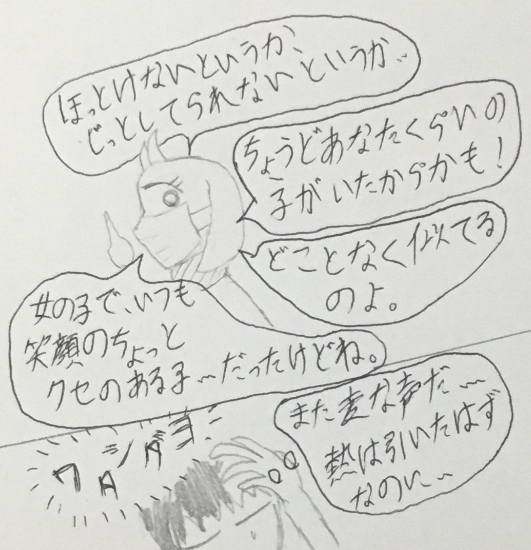 ほっとけないというか、
じっとしてられないというか…
ちょうどあなたくらいの
子がいたからかも!
どことなく似てる
のよ。
女の子で、いつも
笑顔のちょっと
クセのある子…だったけどね。
ワタシダヨ!
また変な声だ…
熱は引いたはず
なのに…